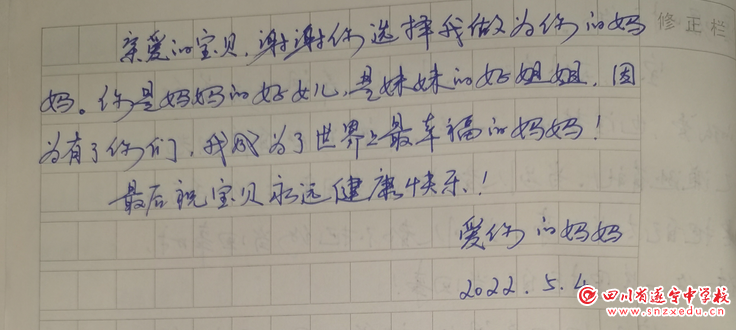 亲爱的宝贝,谢谢你选择我做为你的妈
修正栏
妈。你是妈妈的好女儿,是妹妹的好姐姐,因
为有了你们,我成为了世界上最幸福的妈妈!
最后祝宝贝永远健康快乐!
爱你的妈妈
2022.5.4
四川省遂宁中学校
www.snzxedu.cn